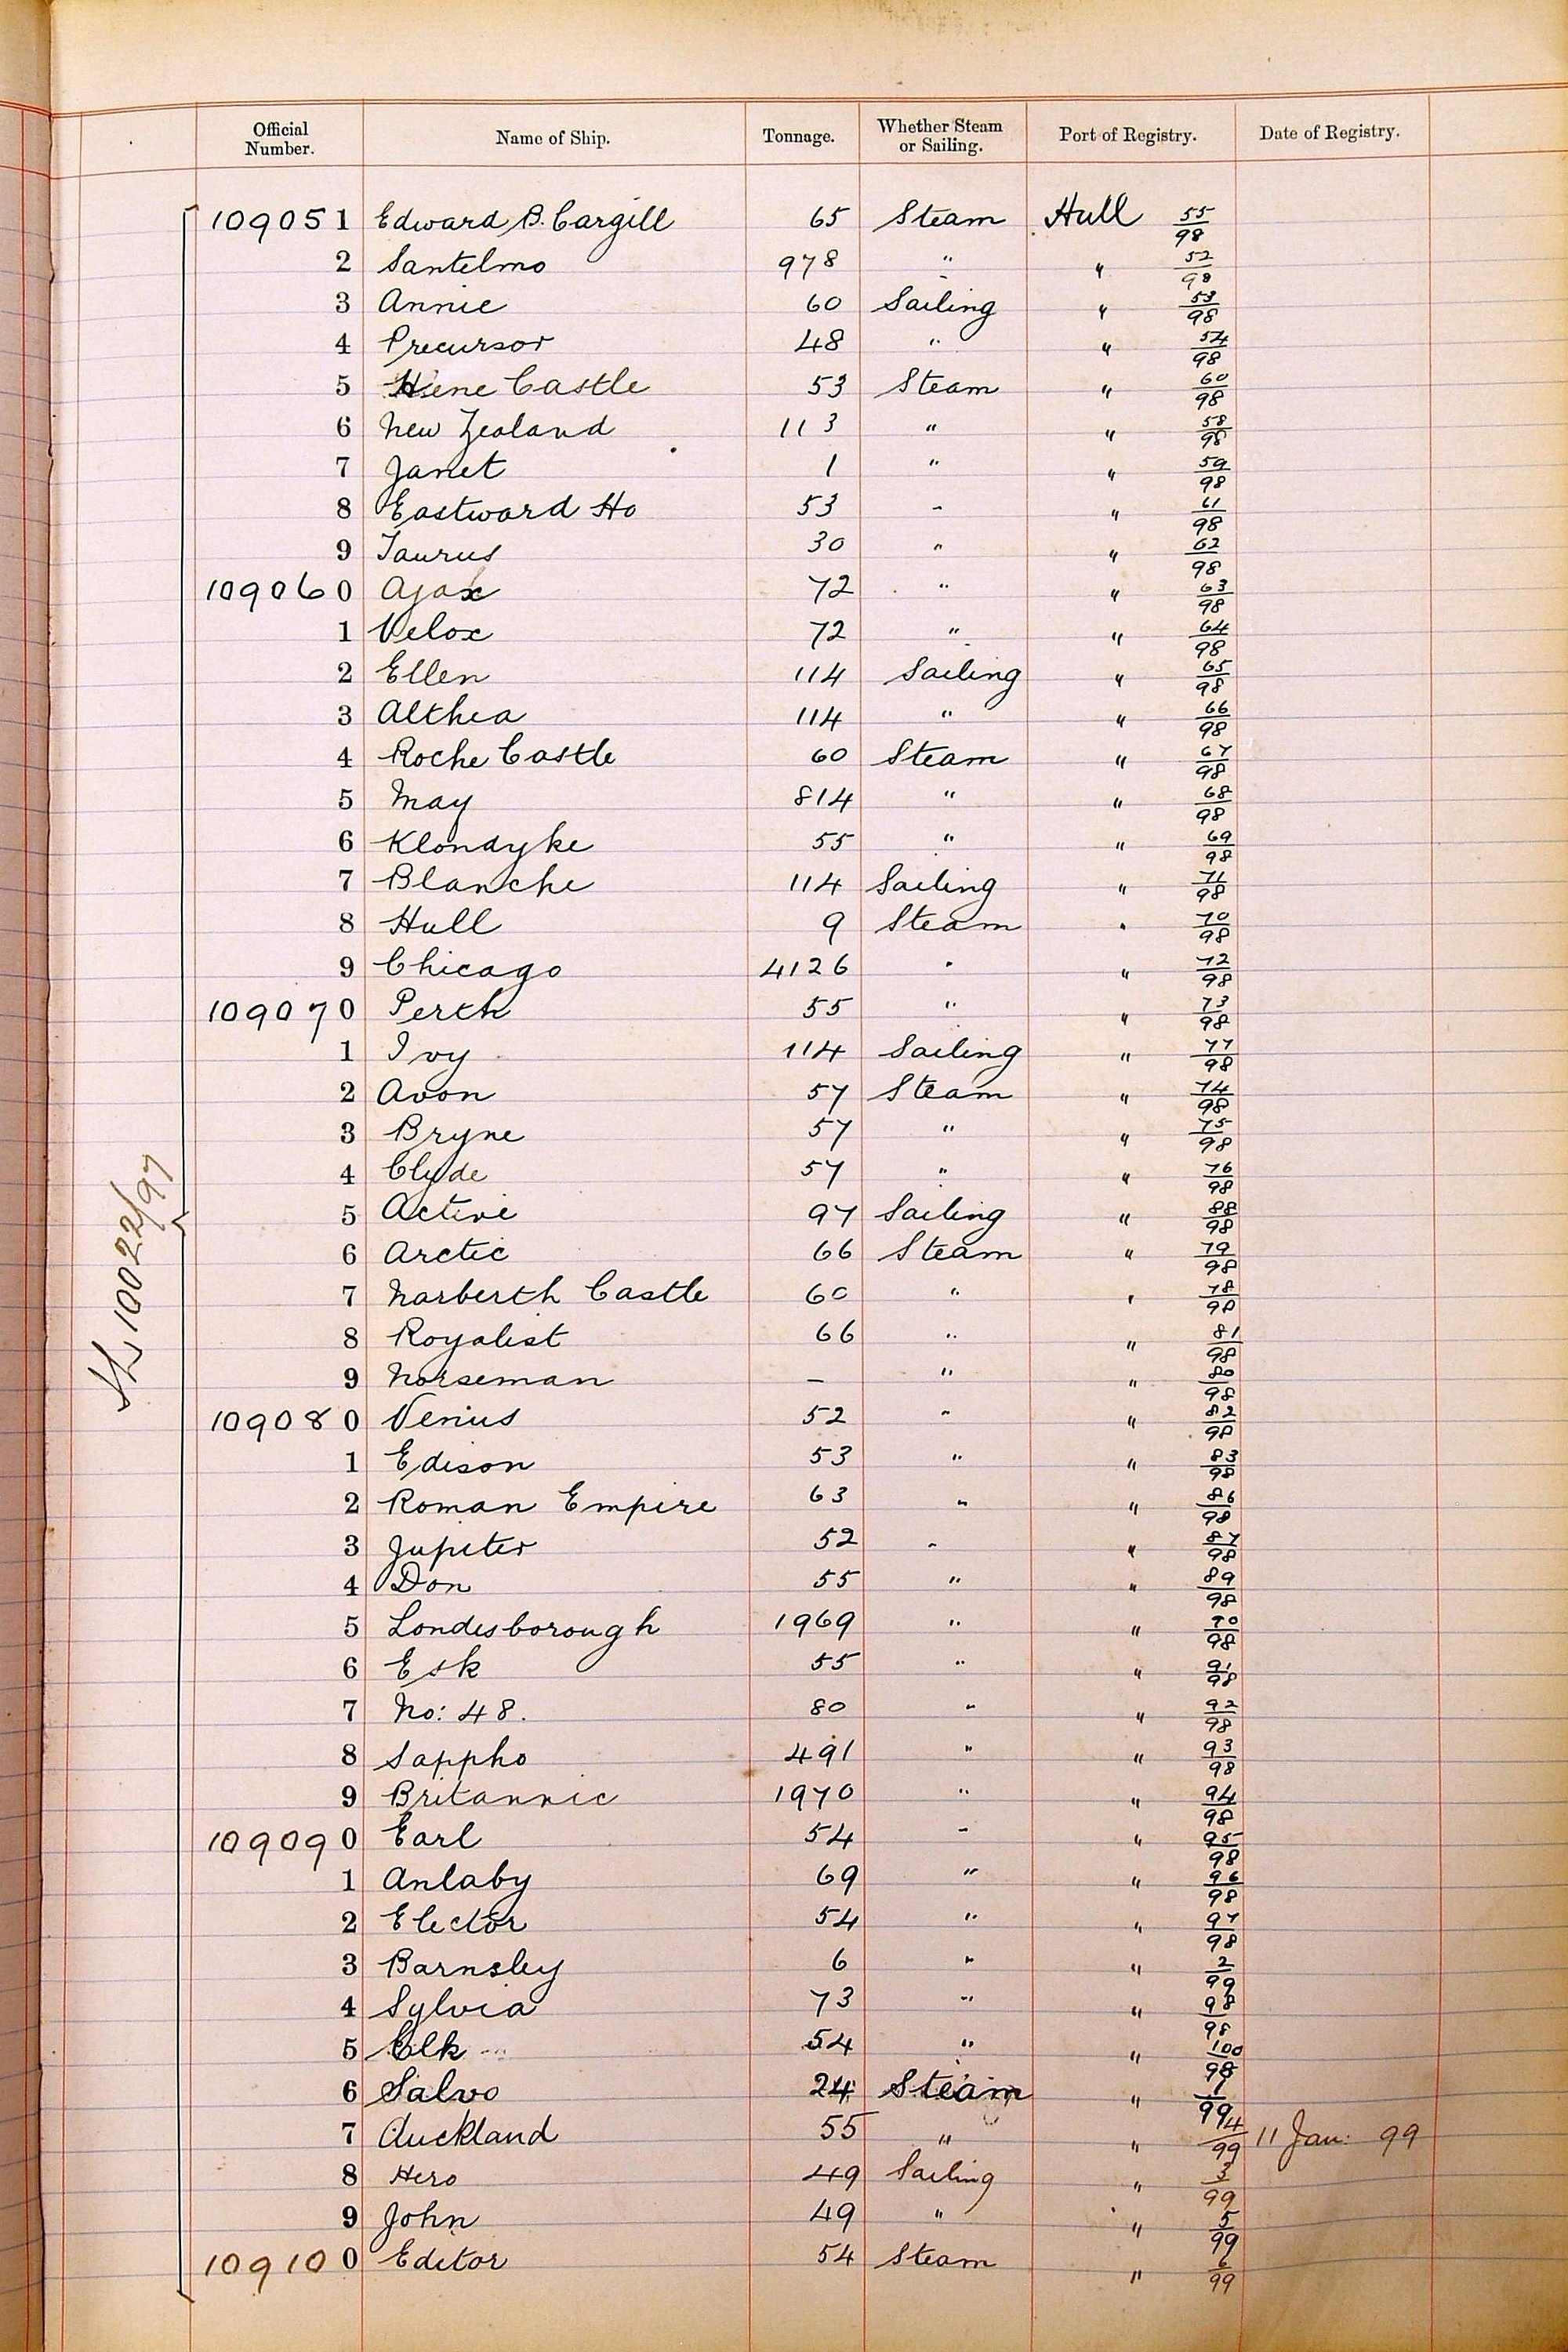 Official Number. Name of Ship. Tonnage. Whether Steam or Sailing. Port of Registry. Date of Registry.
109051 Edward B. Cargill 65 Steam Hull 55/98
2 Santelmo 978 " " 52/98
3 Annie 60 Sailing " 53/98
4 Precursor 48 " " 54/98
5 Castle 53 Steam " 60/98
6 New Zealand 113 " " 58/98
7 Janet 1 " " 59/98
8 Eastward Ho 53 " " 61/98
9 Taurus 30 " " 62/98
109060 Ajax 72 " " 63/98
1 Velox 72 " " 64/98
2 Ellen 114 Sailing " 65/98
3 Althea 114 " " 66/98
4 Roche Castle 60 Steam " 67/98
5 May 814 " " 68/98
6 Klondyke 55 " " 69/98
7 Blanche 114 Sailing " 71/98
8 Hull 9 Steam " 70/98
9 Chicago 4126 " " 72/98
109070 Perth 55 " " 73/98
1 Ivy 114 Sailing " 77/98
2 Avon 57 Steam " 74/98
3 Bryne 57 " " 75/98
4 Clyde 57 " " 76/98
5 Active 97 Sailing " 88/98
6 Arctic 66 Steam " 79/98
7 Narberth Castle 60 " " 78/98
8 Royalist 66 " " 81/98
9 Norseman — " " 80/98
109080 Venus 52 " " 82/98
1 Edison 53 " " 83/98
2 Roman Empire 63 " " 86/98
3 Jupiter 52 " " 87/98
4 Don 55 " " 89/98
5 Londesborough 1969 " " 90/98
6 Esk 55 " " 91/98
7 No: 48. 80 " " 92/98
8 Sappho 491 " " 93/98
9 Britannic 1970 " " 94/98
109090 Earl 54 " " 95/98
1 Anlaby 69 " " 96/98
2 Elector 54 " " 97/98
3 Barnsley 6 " " 2/99
4 Sylvia 73 " " 98/98
5 Elk 54 " " 100/98
6 Salvo 24 Steam " 1/99
7 Auckland 55 " " 4/99 11 Jan: 99
8 Hero 49 Sailing " 3/99
9 John 49 " " 5/99
109100 Editor 54 Steam " 6/99
10022/97